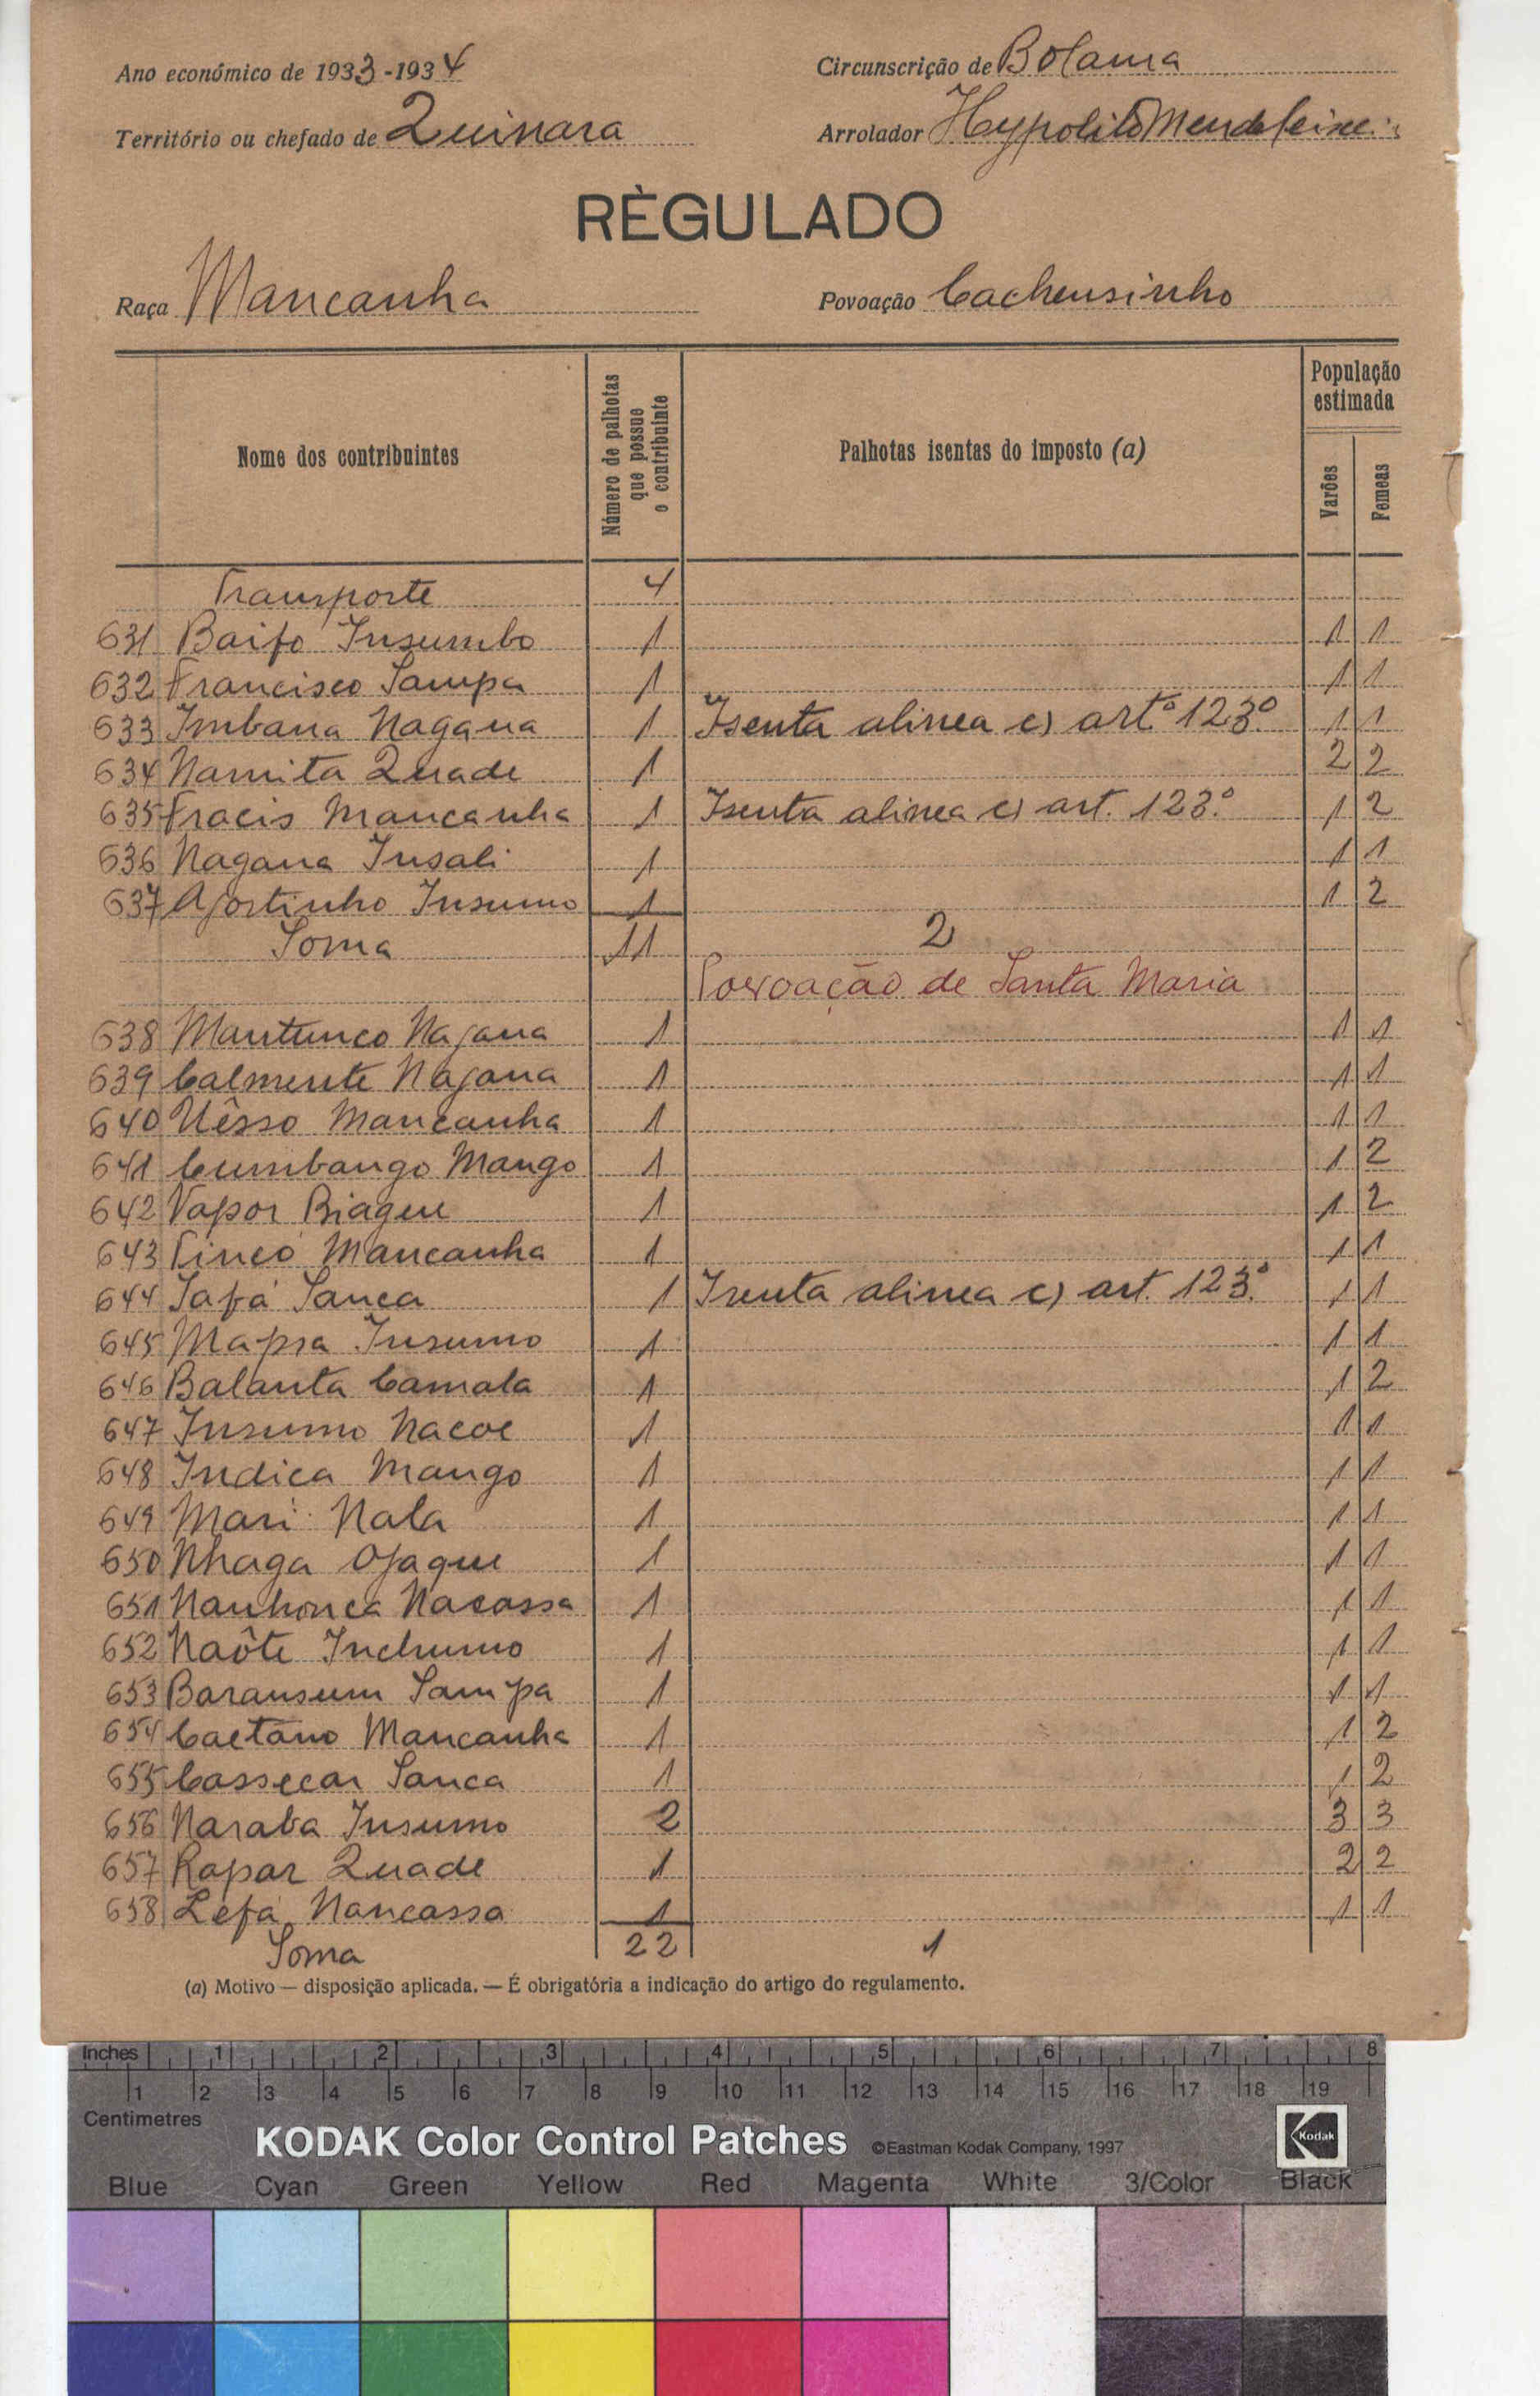 Ano económico de 1933-1934
Circunscrição de Bolama
Território ou chefado de Quinara
Arrolador Hypolito Mendes
RÈGULADO
Raça Mancanha
Povoação Cacheusinho
Nome dos contribuintes
Número de palhotas que possue o contribuinte
Palhotas isentas do imposto (a)
População estimada
Varões
Femeas
Transporte 4
631 Baifo Insumbo 1 1 1
632 Francisco Sampa 1 1 1
633 Imbana Nagana 1 Isenta alinea c) artº 123º. 1 1
634 Namita Quade 1 2 2
635 Fracis Mancanha 1 Isenta alinea c) art. 123.º 1 2
636 Nagana Insali 1 1 1
637 Agostinho Insumo 1 1 2
Soma 11 2
Povoação de Santa Maria
638 Mantunco Nagana 1 1 1
639 Calmente Nagana 1 1 1
640 Uêsso Mancanha 1 1 1
641 Cumbango Mango 1 1 2
642 Vapor Biague 1 1 2
643 Finco Mancanha 1 1 1
644 Jafá Sanca 1 Isenta alinea c) art. 123.º 1 1
645 Mapsa Insumo 1 1 1
646 Balanta Camala 1 1 2
647 Insumo Nacoe 1 1 1
648 Indica Mango 1 1 1
649 Mari Nala 1 1 1
650 Nhaga Ojaque 1 1 1
651 Nanhonca Nacassa 1 1 1
652 Naôte Inchumo 1 1 1
653 Baransum Sampa 1 1 1
654 Caetano Mancanha 1 1 2
655 Cassecar Sanca 1 1 2
656 Naraba Insumo 2 3 3
657 Rapar Quade 1 2 2
658 Lefá Nancassa 1 1 1
Soma 22 1
(a) Motivo — disposição aplicada. — É obrigatória a indicação do artigo do regulamento.
Inches 1 2 3 4 5 6 7 8
1 2 3 4 5 6 7 8 9 10 11 12 13 14 15 16 17 18 19
Centimetres
KODAK Color Control Patches ©Eastman Kodak Company, 1997 Kodak
Blue Cyan Green Yellow Red Magenta White 3/Color Black